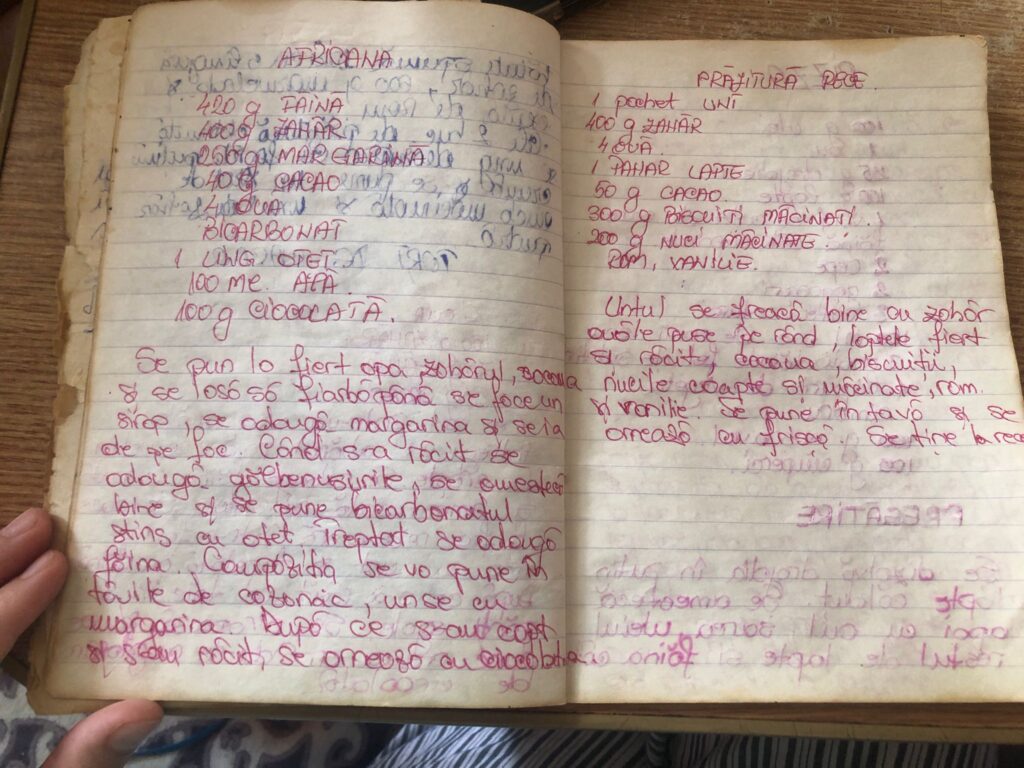 AFRICANA
420 g FAINA
400 g ZAHĂR
250 g MARGARINĂ
40 G CACAO
4 OUĂ
BICARBONAT
1 LING OȚET
100 ML. APĂ
100 g CIOCOLATĂ.
Se pun la fiert apa zahărul, cacaua
și se lasă să fiarbă până se face un
sirop, se adaugă margarina și se ia
de pe foc. Când s-a răcit se
adaugă gălbenușurile, se amestecă
bine și se pune bicarbonatul
stins cu oțet treptat se adaugă
făina. Compoziția se va pune în
tăvile de cozonac, unse cu
margarina. După ce s-au copt
și s-au răcit, se ornează cu ciocolata
PRĂJITURĂ RECE.
1 pachet UNT
400 g ZAHĂR
4 OUĂ.
1 PAHAR LAPTE
50 g CACAO.
300 g BISCUIȚI MĂCINAȚI.
200 g NUCI MĂCINATE
ROM, VANILIE.
Untul se freacă bine cu zahăr
ouăle puse pe rând, laptele fiert
și răcit, cacaua, biscuiții,
nucile coapte si măcinate, rom.
și vanilie Se pune în tavă și se
ornează cu frișcă. Se ține la rece